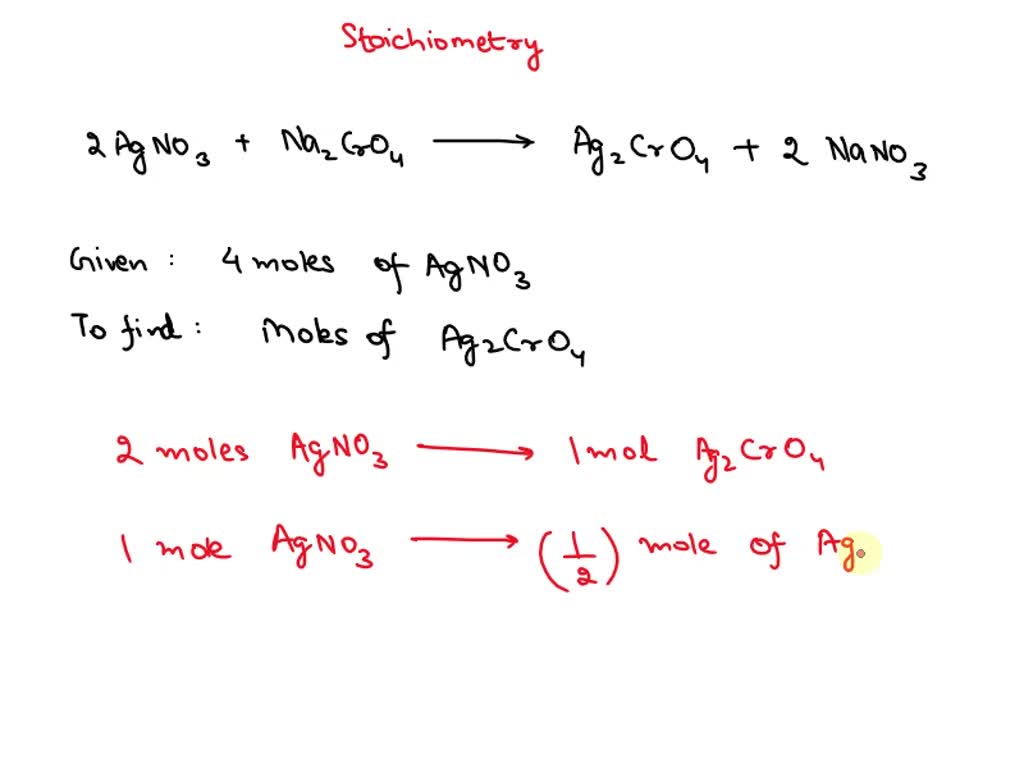 Stoichiometry
2 AgNO3 + Na2CrO4 ⟶ Ag2CrO4 + 2 NaNO3
Given : 4 moles of AgNO3
To find : Moles of Ag2CrO4
2 moles AgNO3 ⟶ 1 mol Ag2CrO4
1 mole AgNO3 ⟶ (1/2) mole of Ag